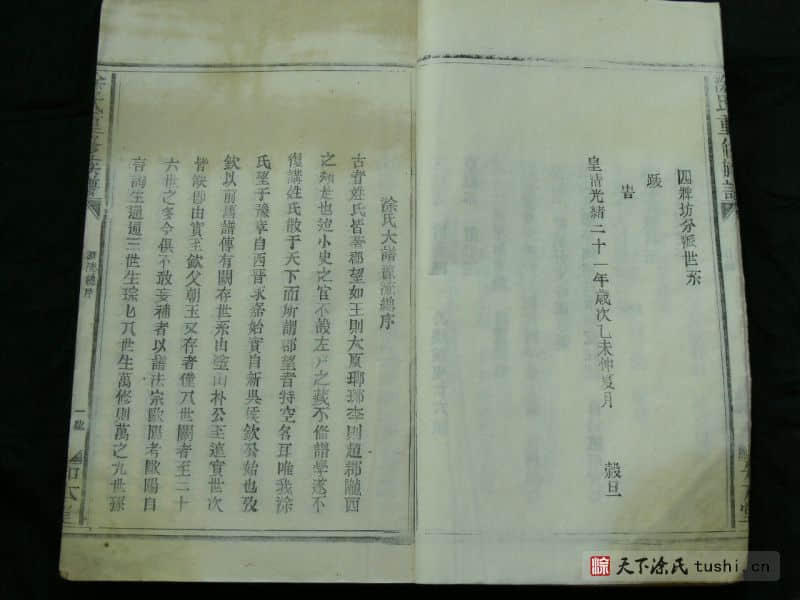 四牌坊分派世系
跋
皇清光緒二十一年歲次乙未仲夏月 穀旦
涂氏大譜源流總序
古者姓氏皆著郡望如王則太原瑯琊李則趙郡隴西
之類是也迨小史之官不設左戶之藏不脩譜學遂不
復講姓氏散于天下而所謂郡望者特空名耳唯我涂
氏望于豫章自西晉永嘉始實自新吳侯欽公始也攷
欽以前舊譜傳有闕存世系由塗山朴公至連實世次
皆缺即由實至欽父朝玉又存者僅八世闕者至三十
六世之多今俱不敢妄補者以譜法宗歐陽考歐陽自
言詢生通通三世生琮八世生萬修則萬之九世孫
源流總序
一
天下涂氏 tushi.cn